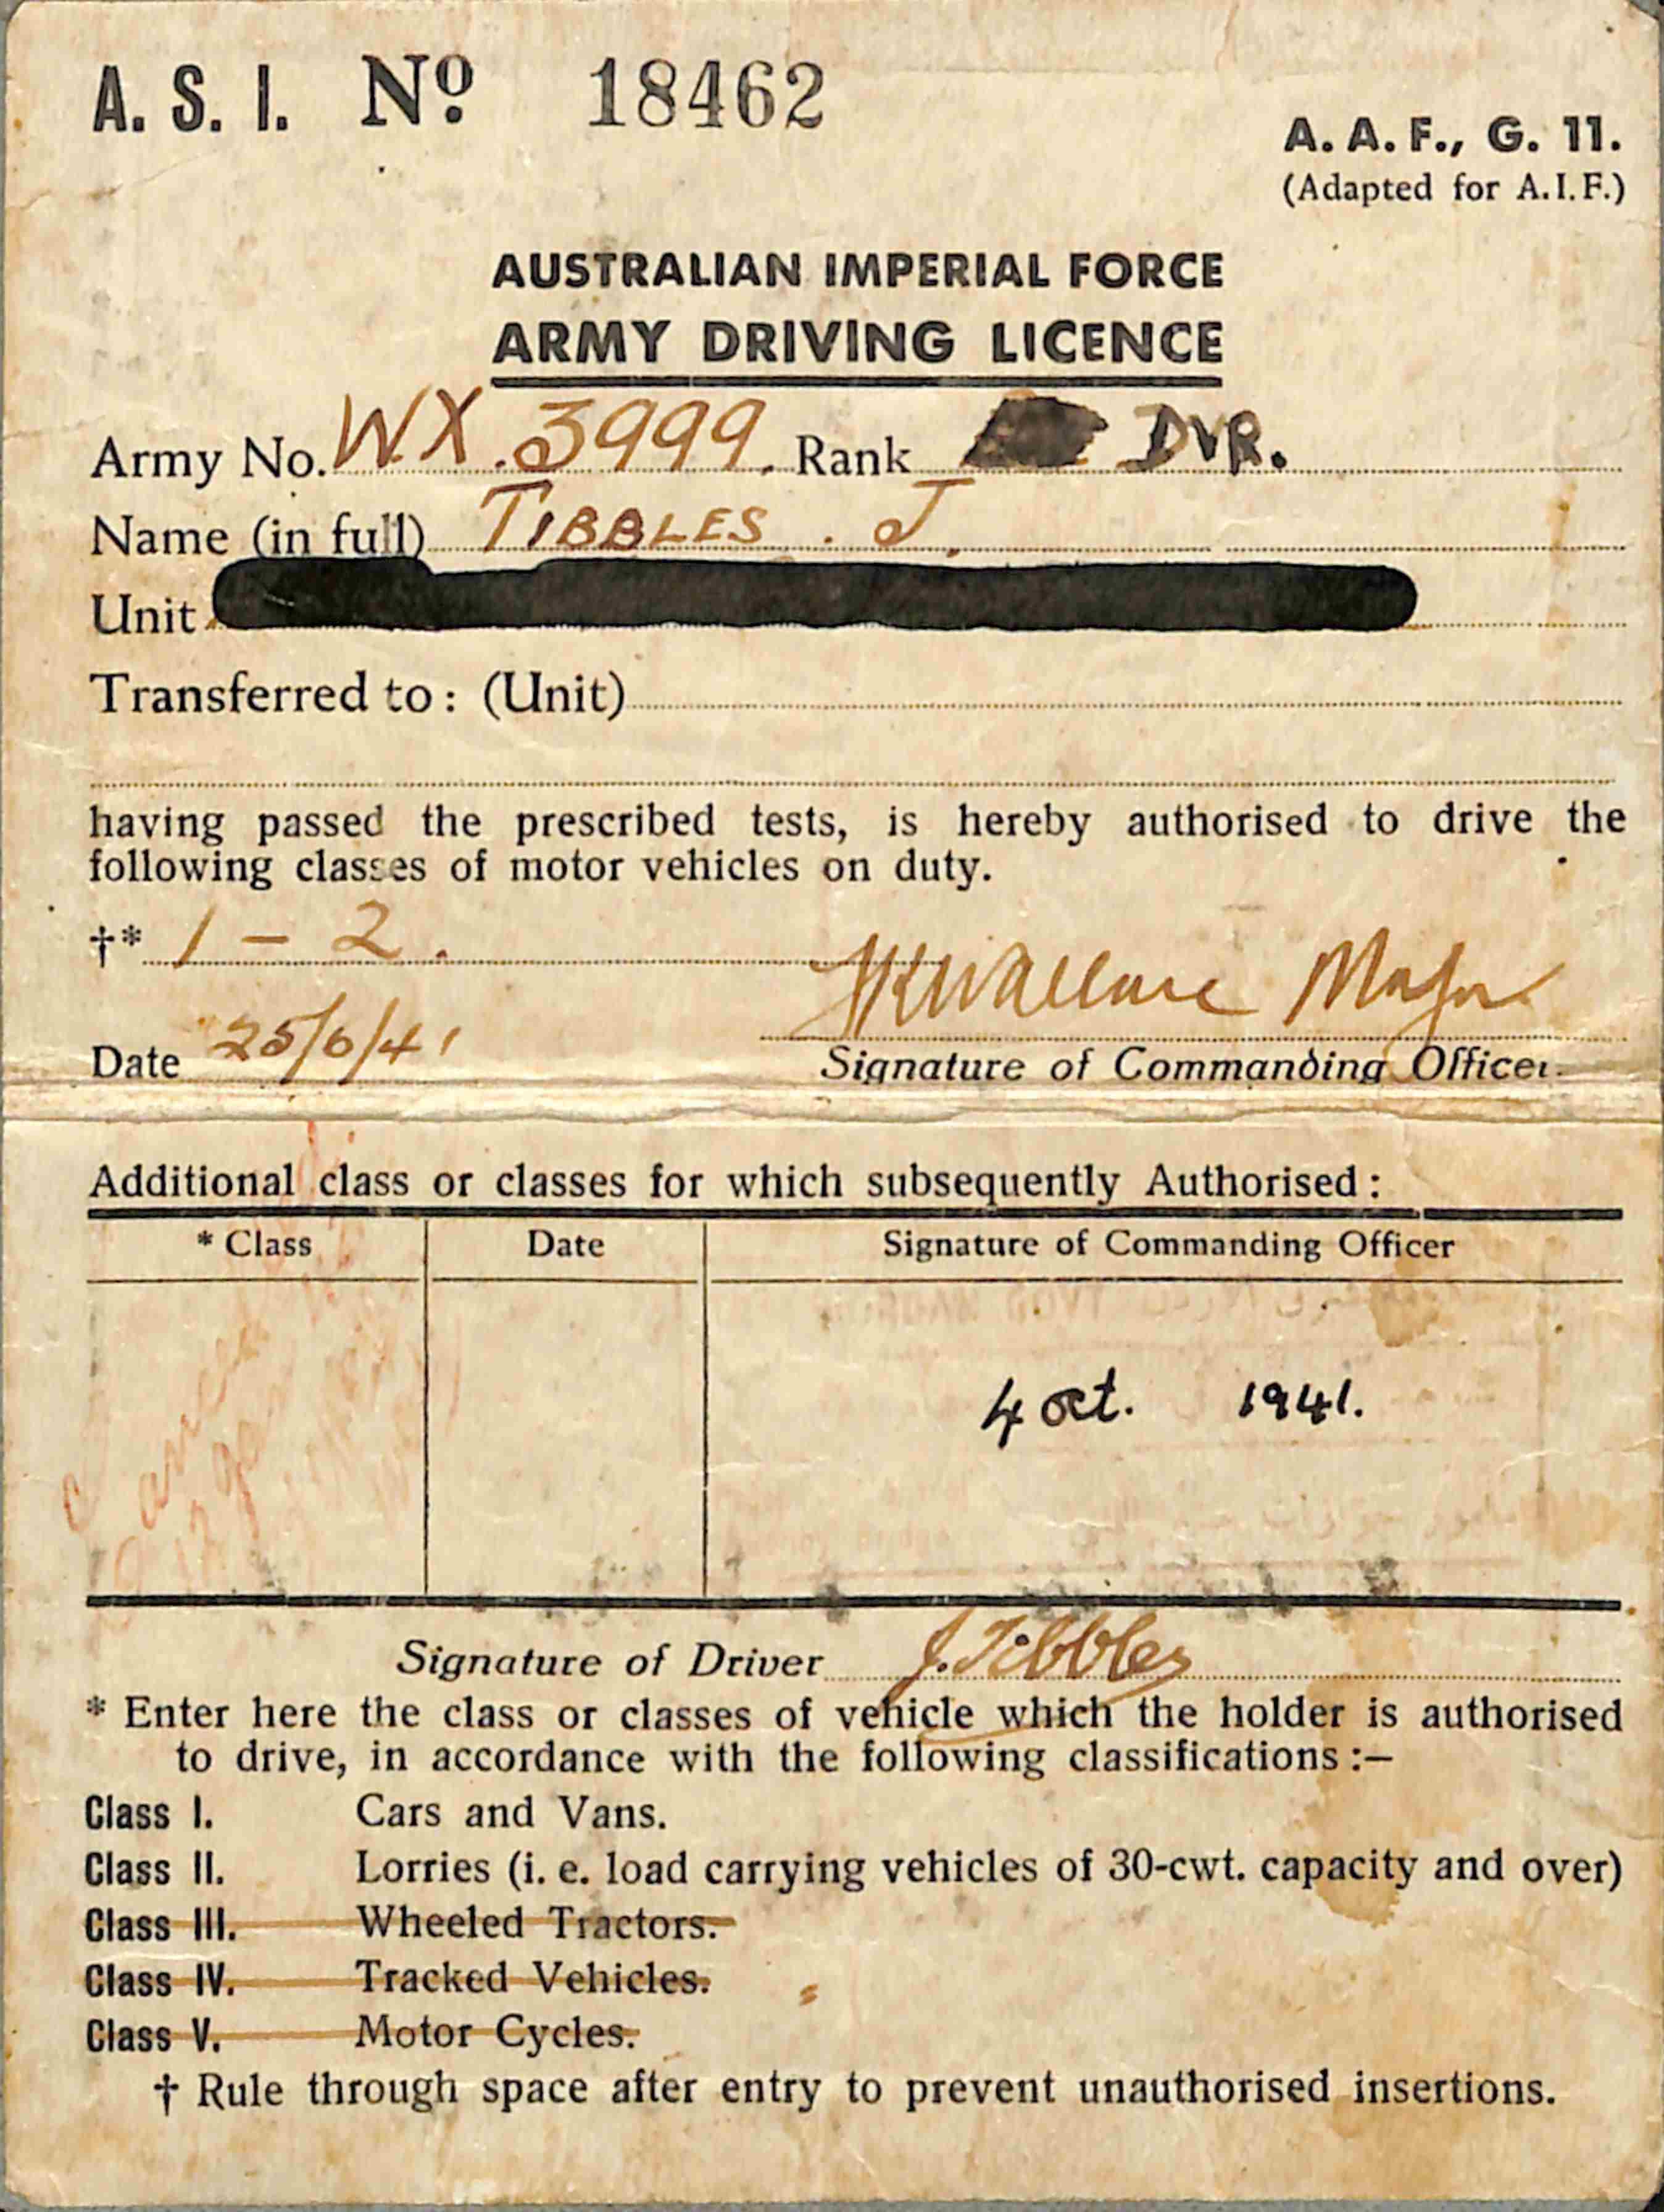 A. S. I. Nº 18462
A. A. F., G. 11.
(Adapted for A.I.F.)
AUSTRALIAN IMPERIAL FORCE
ARMY DRIVING LICENCE
Army No. WX.3999. Rank DVR.
Name (in full) TIBBLES . J.
Unit
Transferred to : (Unit)
having passed the prescribed tests, is hereby authorised to drive the
following classes of motor vehicles on duty.
†* 1 – 2 .
Wallace Major
Date 25/6/41
Signature of Commanding Officer.
Additional class or classes for which subsequently Authorised :
* Class Date Signature of Commanding Officer
4 Oct. 1941.
Signature of Driver J. Tibbles
* Enter here the class or classes of vehicle which the holder is authorised
to drive, in accordance with the following classifications :—
Class I. Cars and Vans.
Class II. Lorries (i. e. load carrying vehicles of 30-cwt. capacity and over)
Class III. Wheeled Tractors.
Class IV. Tracked Vehicles.
Class V. Motor Cycles.
† Rule through space after entry to prevent unauthorised insertions.